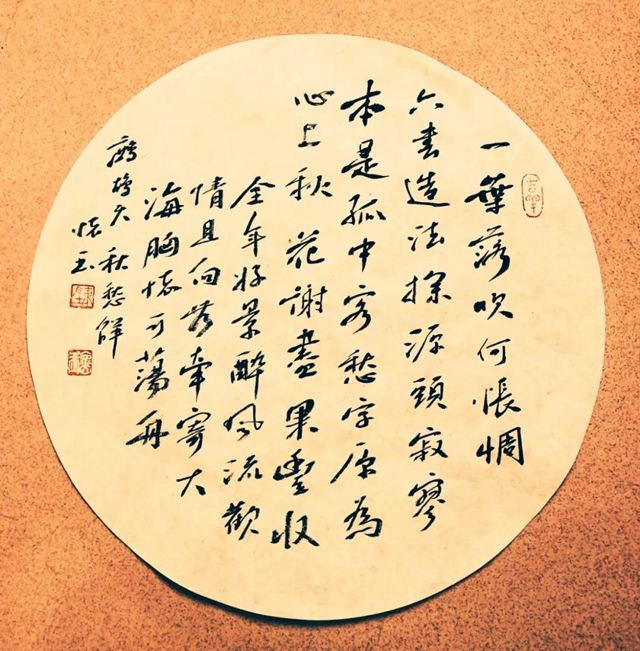 一葉落吹何悵惆
六書造法探源頭寂寥
本是孤中客愁字原為
心上秋花謝盡果豐收
全年好景醉風流歡
情且向牽寄大
海胸懷可蕩舟
鷓鴣天秋愁解